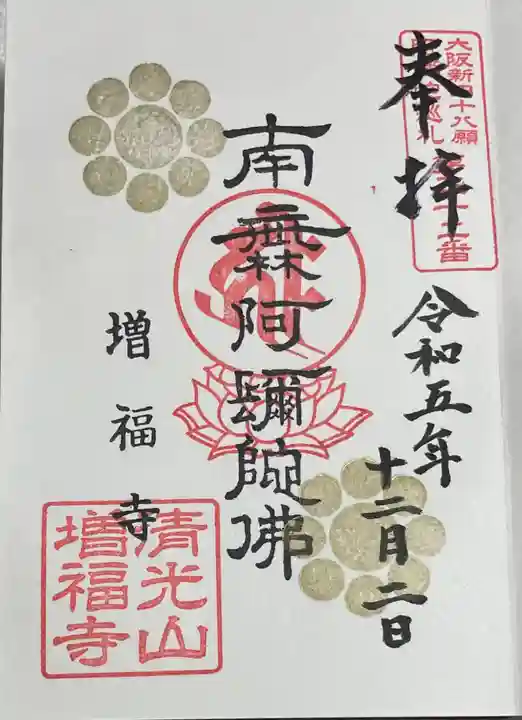 奉拝
大阪新四十八願
巡礼
番
令和五年
十二月二日
南無阿彌陀佛
増福寺
清光山
増福寺